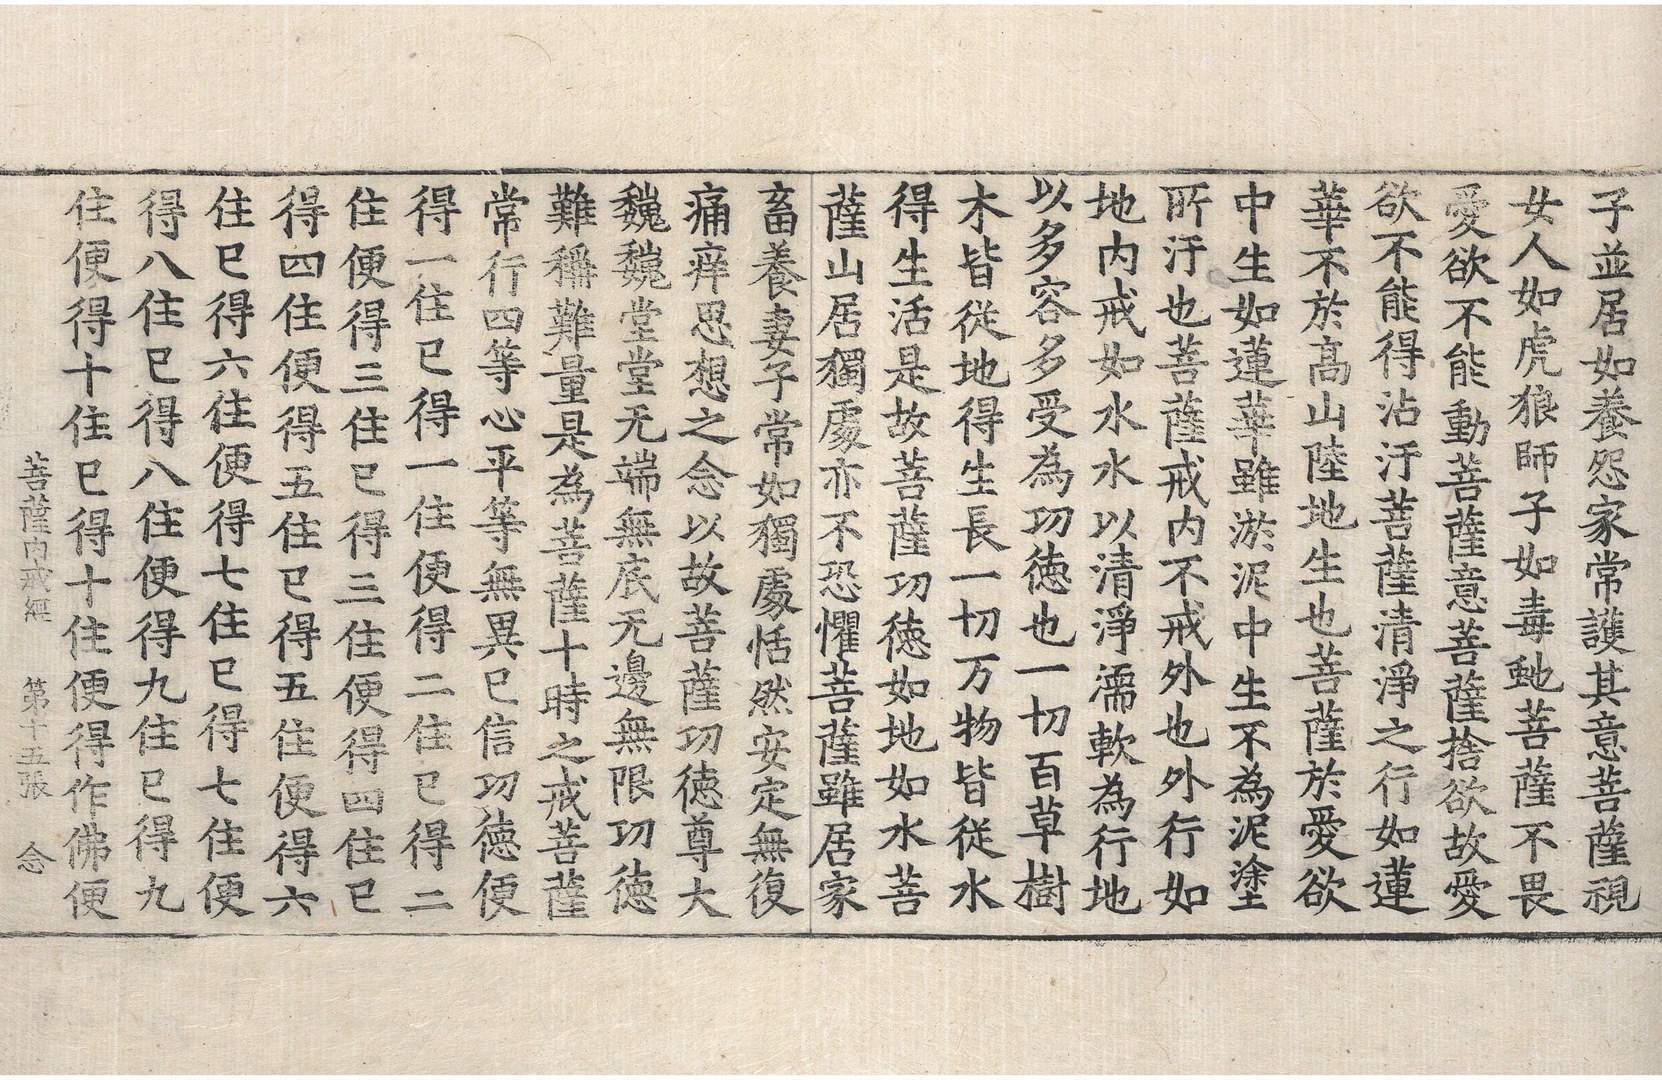 子並居如養怨家常護其意菩薩視
女人如虎狼師子如毒虵菩薩不畏
愛欲不能動菩薩意菩薩捨欲故愛
欲不能得沾汙菩薩清淨之行如蓮
華不於髙山陸地生也菩薩於愛欲
中生如蓮華雖淤泥中生不為泥塗
所汙也菩薩戒内不戒外也外行如
地内戒如水水以清淨濡軟為行地
以多容多受為功徳也一切百草樹
木皆從地得生長一切万物皆從水
得生活是故菩薩功徳如地如水菩
薩山居獨處亦不恐懼菩薩雖居家
畜養妻子常如獨處恬然安定無復
痛痒思想之念以故菩薩功徳尊大
巍巍堂堂无端無底无邊無限功徳
難稱難量是為菩薩十時之戒菩薩
常行四等心平等無異已信功徳便
得一住已得一住便得二住已得二
住便得三住已得三住便得四住已
得四住便得五住已得五住便得六
住已得六住便得七住已得七住便
得八住已得八住便得九住已得九
住便得十住已得十住便得作佛便
菩薩内戒經　第十五張　念